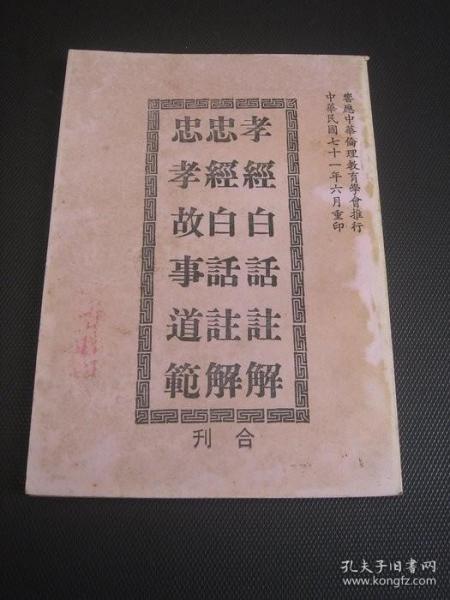 響應中華倫理教育學會推行
中華民國七十一年六月重印
孝經白話註解
忠經白話註解
忠孝故事道範
合刊
孔夫子旧书网
www.kongfz.com